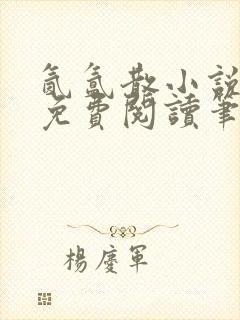 氤氲散小說
免費閱讀筆
楊慶軍